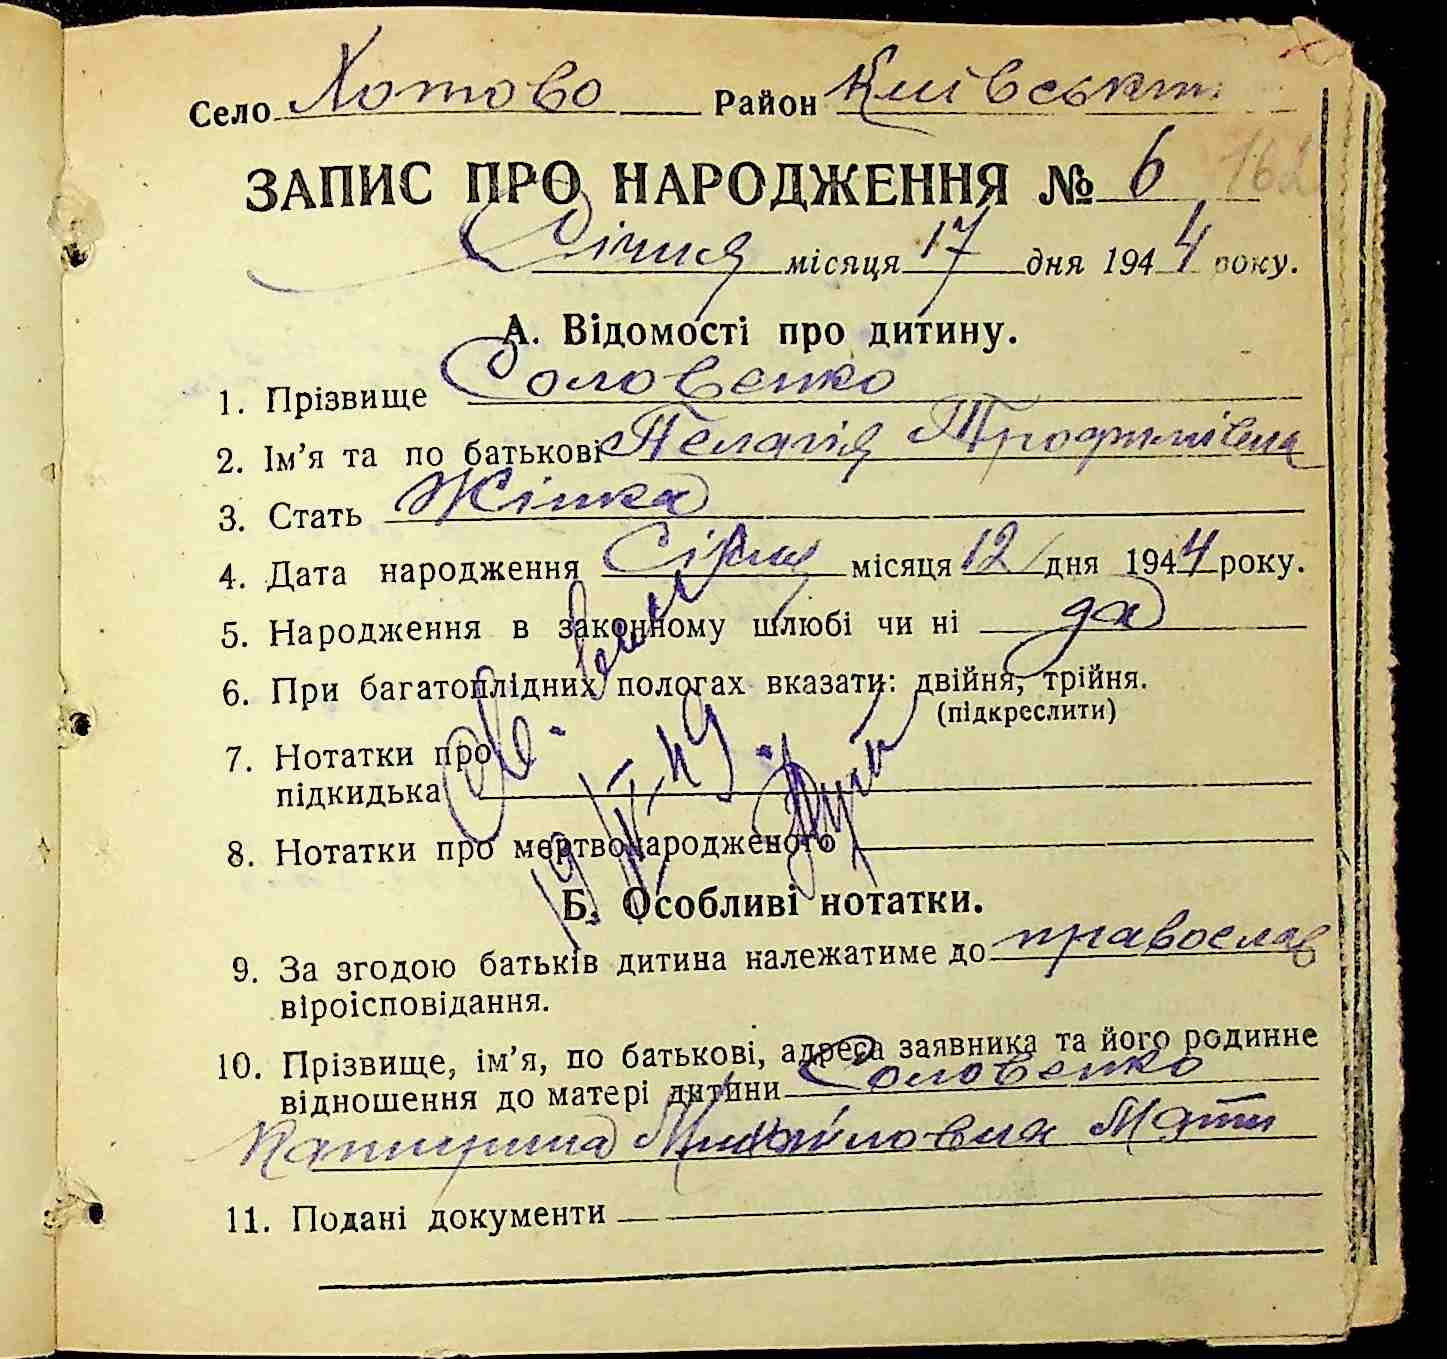 Село Хотово Район Київський
ЗАПИС ПРО НАРОДЖЕННЯ № 6 162
Січня місяця 17 дня 1944 року.
А. Відомості про дитину.
1. Прізвище Соловенко
2. Ім'я та по батькові Пелагія Трофимівна
3. Стать Жінка
4. Дата народження Січня місяця 12 дня 1944 року.
5. Народження в законному шлюбі чи ні да
6. При багатоплідних пологах вказати: двійня, трійня.
(підкреслити)
7. Нотатки про
підкидька
19/IX-49
8. Нотатки про мертвонародженого
Б. Особливі нотатки.
9. За згодою батьків дитина належатиме до православ
віроісповідання.
10. Прізвище, ім'я, по батькові, адреса заявника та його родинне
відношення до матері дитини Соловенко
Катирина Михайловна Мати
11. Подані документи